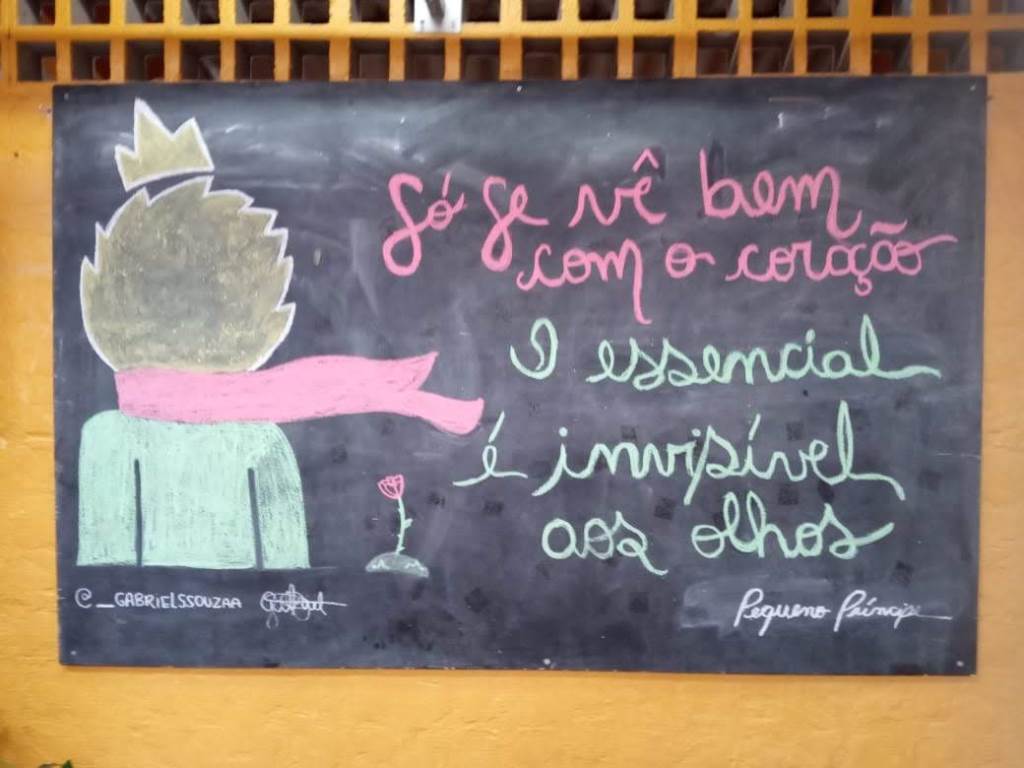 Só se vê bem
com o coração
O essencial
é invisível
aos olhos
Pequeno Príncipe
@_GABRIELSSOUZAA